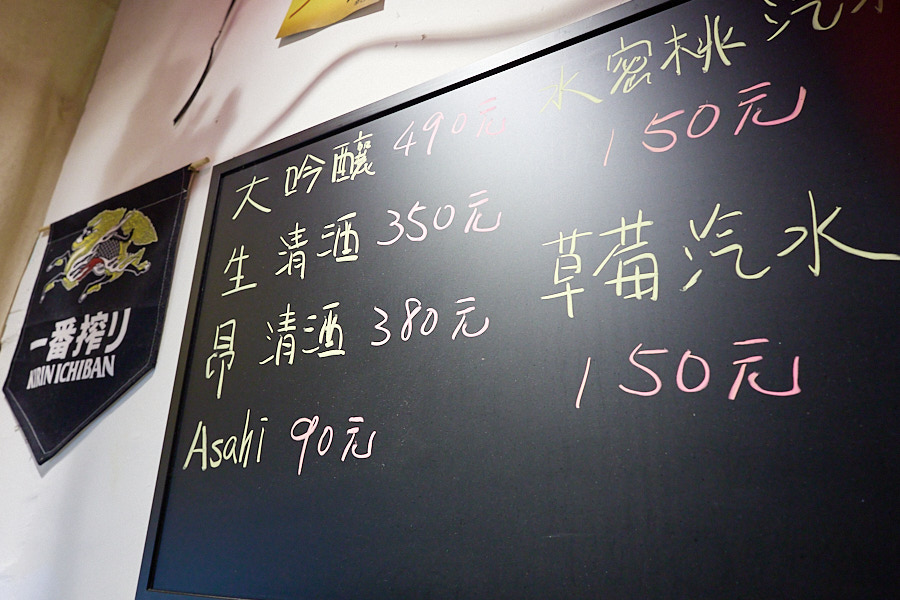 大吟釀 490元
生 清酒 350元
昂 清酒 380元
Asahi 90元
水蜜桃 汽水
150元
草莓 汽水
150元
一番搾り
KIRIN ICHIBAN